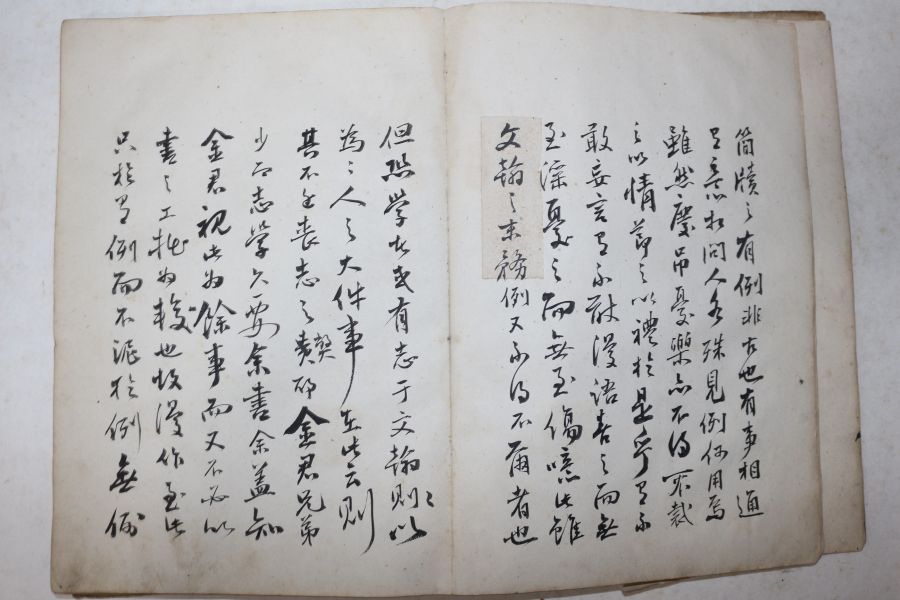 簡牘之有例非古也有事相通
有意相問人各殊見例何用焉
雖然慶吊憂樂亦不得不裁
之以情節之以禮於是乎有不
敢妄言有不敢漫語喜之而無
至深憂之而無至傷噫此雖
文翰之末務例又不得不爾者也
但恐學者或有志于文翰則以
為人之大件事在此云則
其不喪志之 金君兄弟
少而志學欠要余書余盖知
金君視此為餘事而又不必以
書之工拙為較也故漫作至此
只於有例而不泥於例無例